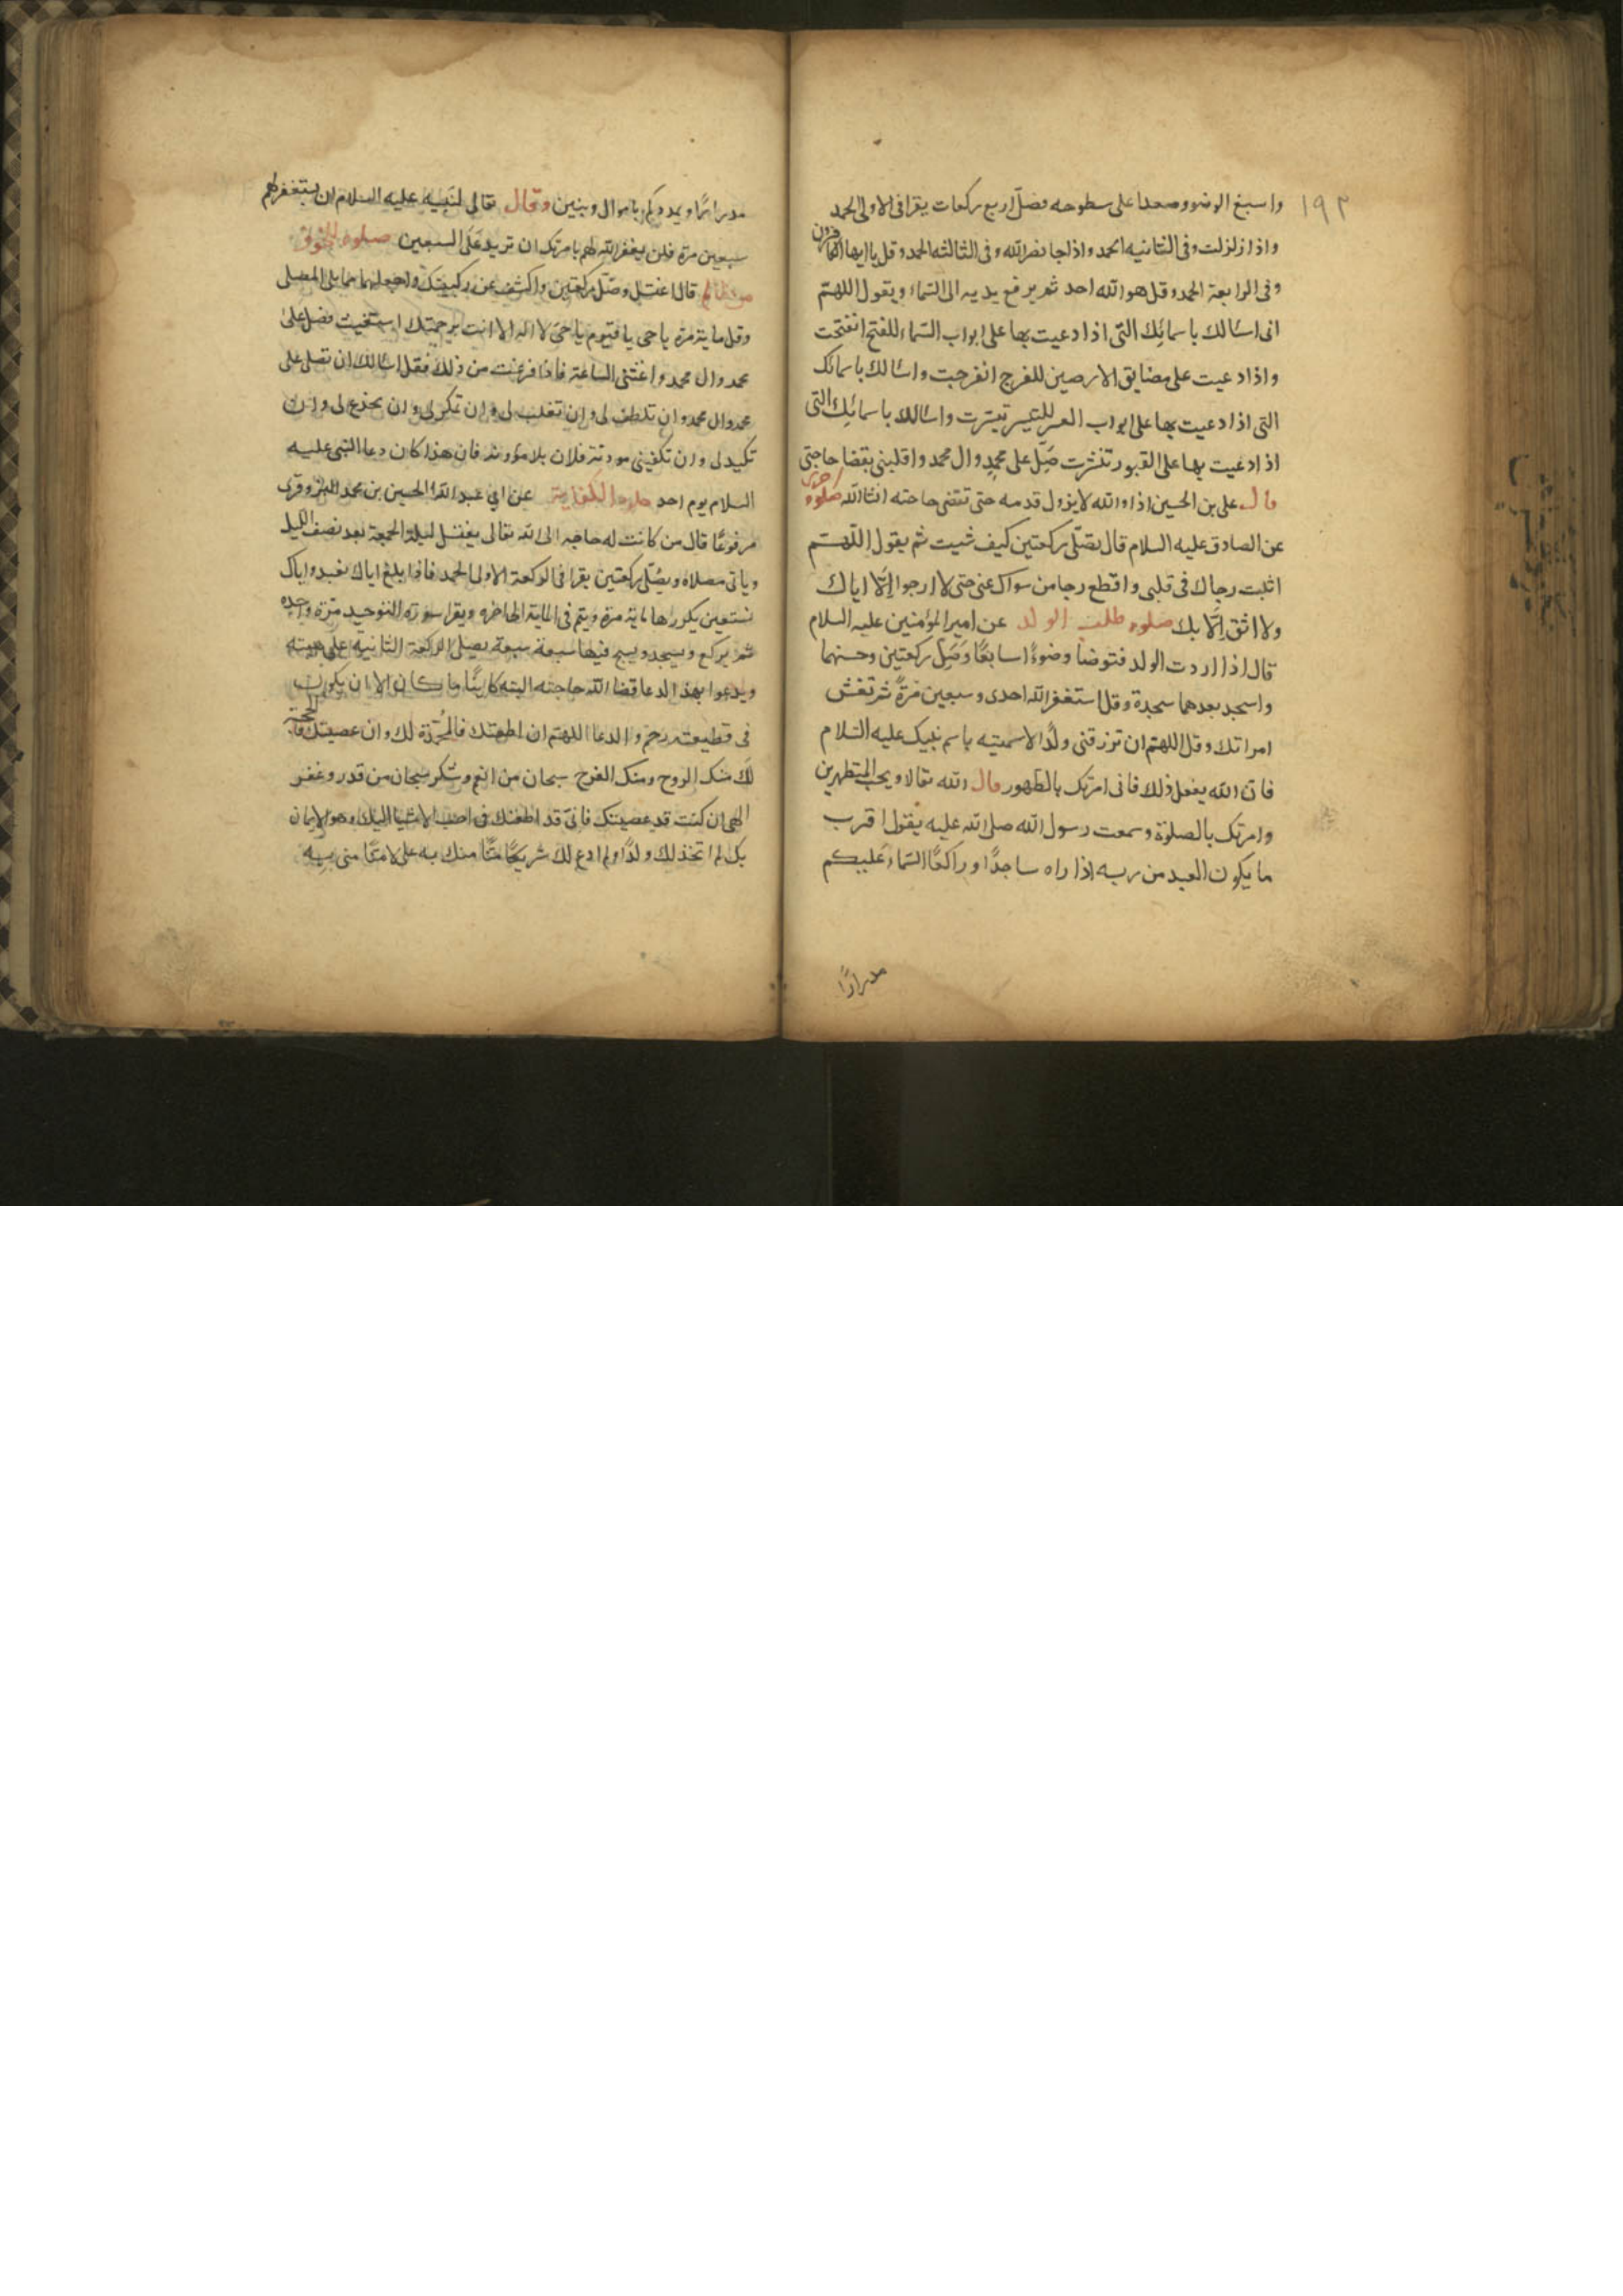 ١٩٢
واسبغ الوضوء وصعدا على سطوحه فصل اربع ركعات يقرا فى الاولى الحمد
واذا زلزلت وفى الثانيه الحمد واذا جا نصر الله وفى الثالثه الحمد وقل يا ايها الكافرون
وفى الرابعة الحمد وقل هو الله احد ثم يرفع يديه الى السّماء ويقول اللهم
انى اسالك باسمائك التى اذا دعيت بها على ابواب السّماء للفتح انفتحت
واذا دعيت على مضايق الارضين للفرج انفرجت واسالك باسمائك
التى اذا دعيت بها على ابواب العسر للتيسر تيسرت واسالك باسمائك التى
اذا دعيت بها على القبور تنشرت صّلِ على محمدٍ وال محمد واقلبنى بقضا حاجتى
قال على بن الحسين اذا والله لا يزول قدمه حتى تقضى حاجته انشا الله صلوه اخرى
عن الصادق عليه السلام قال تصلّى ركعتين كيف شيت ثم يقول اللّهم
اثبت رجاك فى قلبى واقطع رجا من سواك عنى حتى لا ارجوا اِلّا اياك
ولا اثق اِلّا بك صلوه طلب الولد عن امير المؤمنين عليه السلام
قال اذا اردت الولد فتوضا وضوءًا سابغًا وَصَلِ ركعتين وحسنهما
واسجد بعدهما سجدة وقل استغفر الله احدى وسبعين مَرةً ثم تغش
امراتك وقل اللهم ان ترزقنى ولدًا لاسميته باسم نبيك عليه السّلام
فان الله يفعل ذلك فانى امرتك بالطّهور قال الله تعالا ويحب المتطهرين
وامرتك بالصلوة وسمعت رسول الله صلى الله عليه يقول اقرب
ما يكون العبد من ربه اذا راه ساجدًا وراكعًا السّماء عَليكم
مدرارًا
مدرارًا ويمددكم باموال وبنين وقال تعالى لنبيه عليه السلام ان يستغفر لهم
سبعين مرة فلن يغفر الله لهم يامرتك ان تزيد عَلَى السبعين صلوه للخوف
من ظالم قال اغتسل وصّل ركعتين واكشف عن ركبتيك واجعلهما مما يلى المصلى
وقل ماية مرة يا حى يا قيوم يا حىّ لا اله الا انت برحمتك استغيث فصل على
محمد وال محمد واغثنى الساعة فاذا فرغت من ذلك فقل اسالك ان تصلى على
محمد وال محمد وان تلطف لى وان تغلب لى وان تمكر لى وان تخدع لى وان
تكيد لى وان تكفينى مونة فلان بلا مؤونة فان هذا كان دعا النبى عليه
السلام يوم احد صلوه الكفاية عن ابي عبد الله الحسين بن محمد البزوفرى
مرفوعًا قال من كانت له حاجه الى الله تعالى يغتسل ليلة الجمعة بعد نصف الليل
وياتى مصلاه ويصُلّى ركعتين يقرا فى الركعة الاولى الحمد فاذا بلغ اياك نعبد واياك
نستعين يكررها ماية مرة ويتم فى الماية الى اخره ويقرا سورة التوحيد مَرّة واحده
ثم يركع ويسجد ويسبح فيها سبعة سبعة يصلى الركعة الثانية على هيئته
ويدعوا بهذا الدعا قضا الله حاجته البته كاينًا ما كان الا ان يكون
فى قطيعة رحم والدعا اللهم ان اطعتك فالمحمدة لك وان عصيتك فالحجة
لَك منك الروح ومنك الفرج سبحان من انعم وشكر سبحان من قدر وغفر
الهى ان كنت قد عصيتك فانى قد اطعتك فى احب الاشيا اليك وهو الايمان
بك لم اتخذ لك ولدًا ولم ادع لك شريكًا منّا منك به على لا منّا منى به